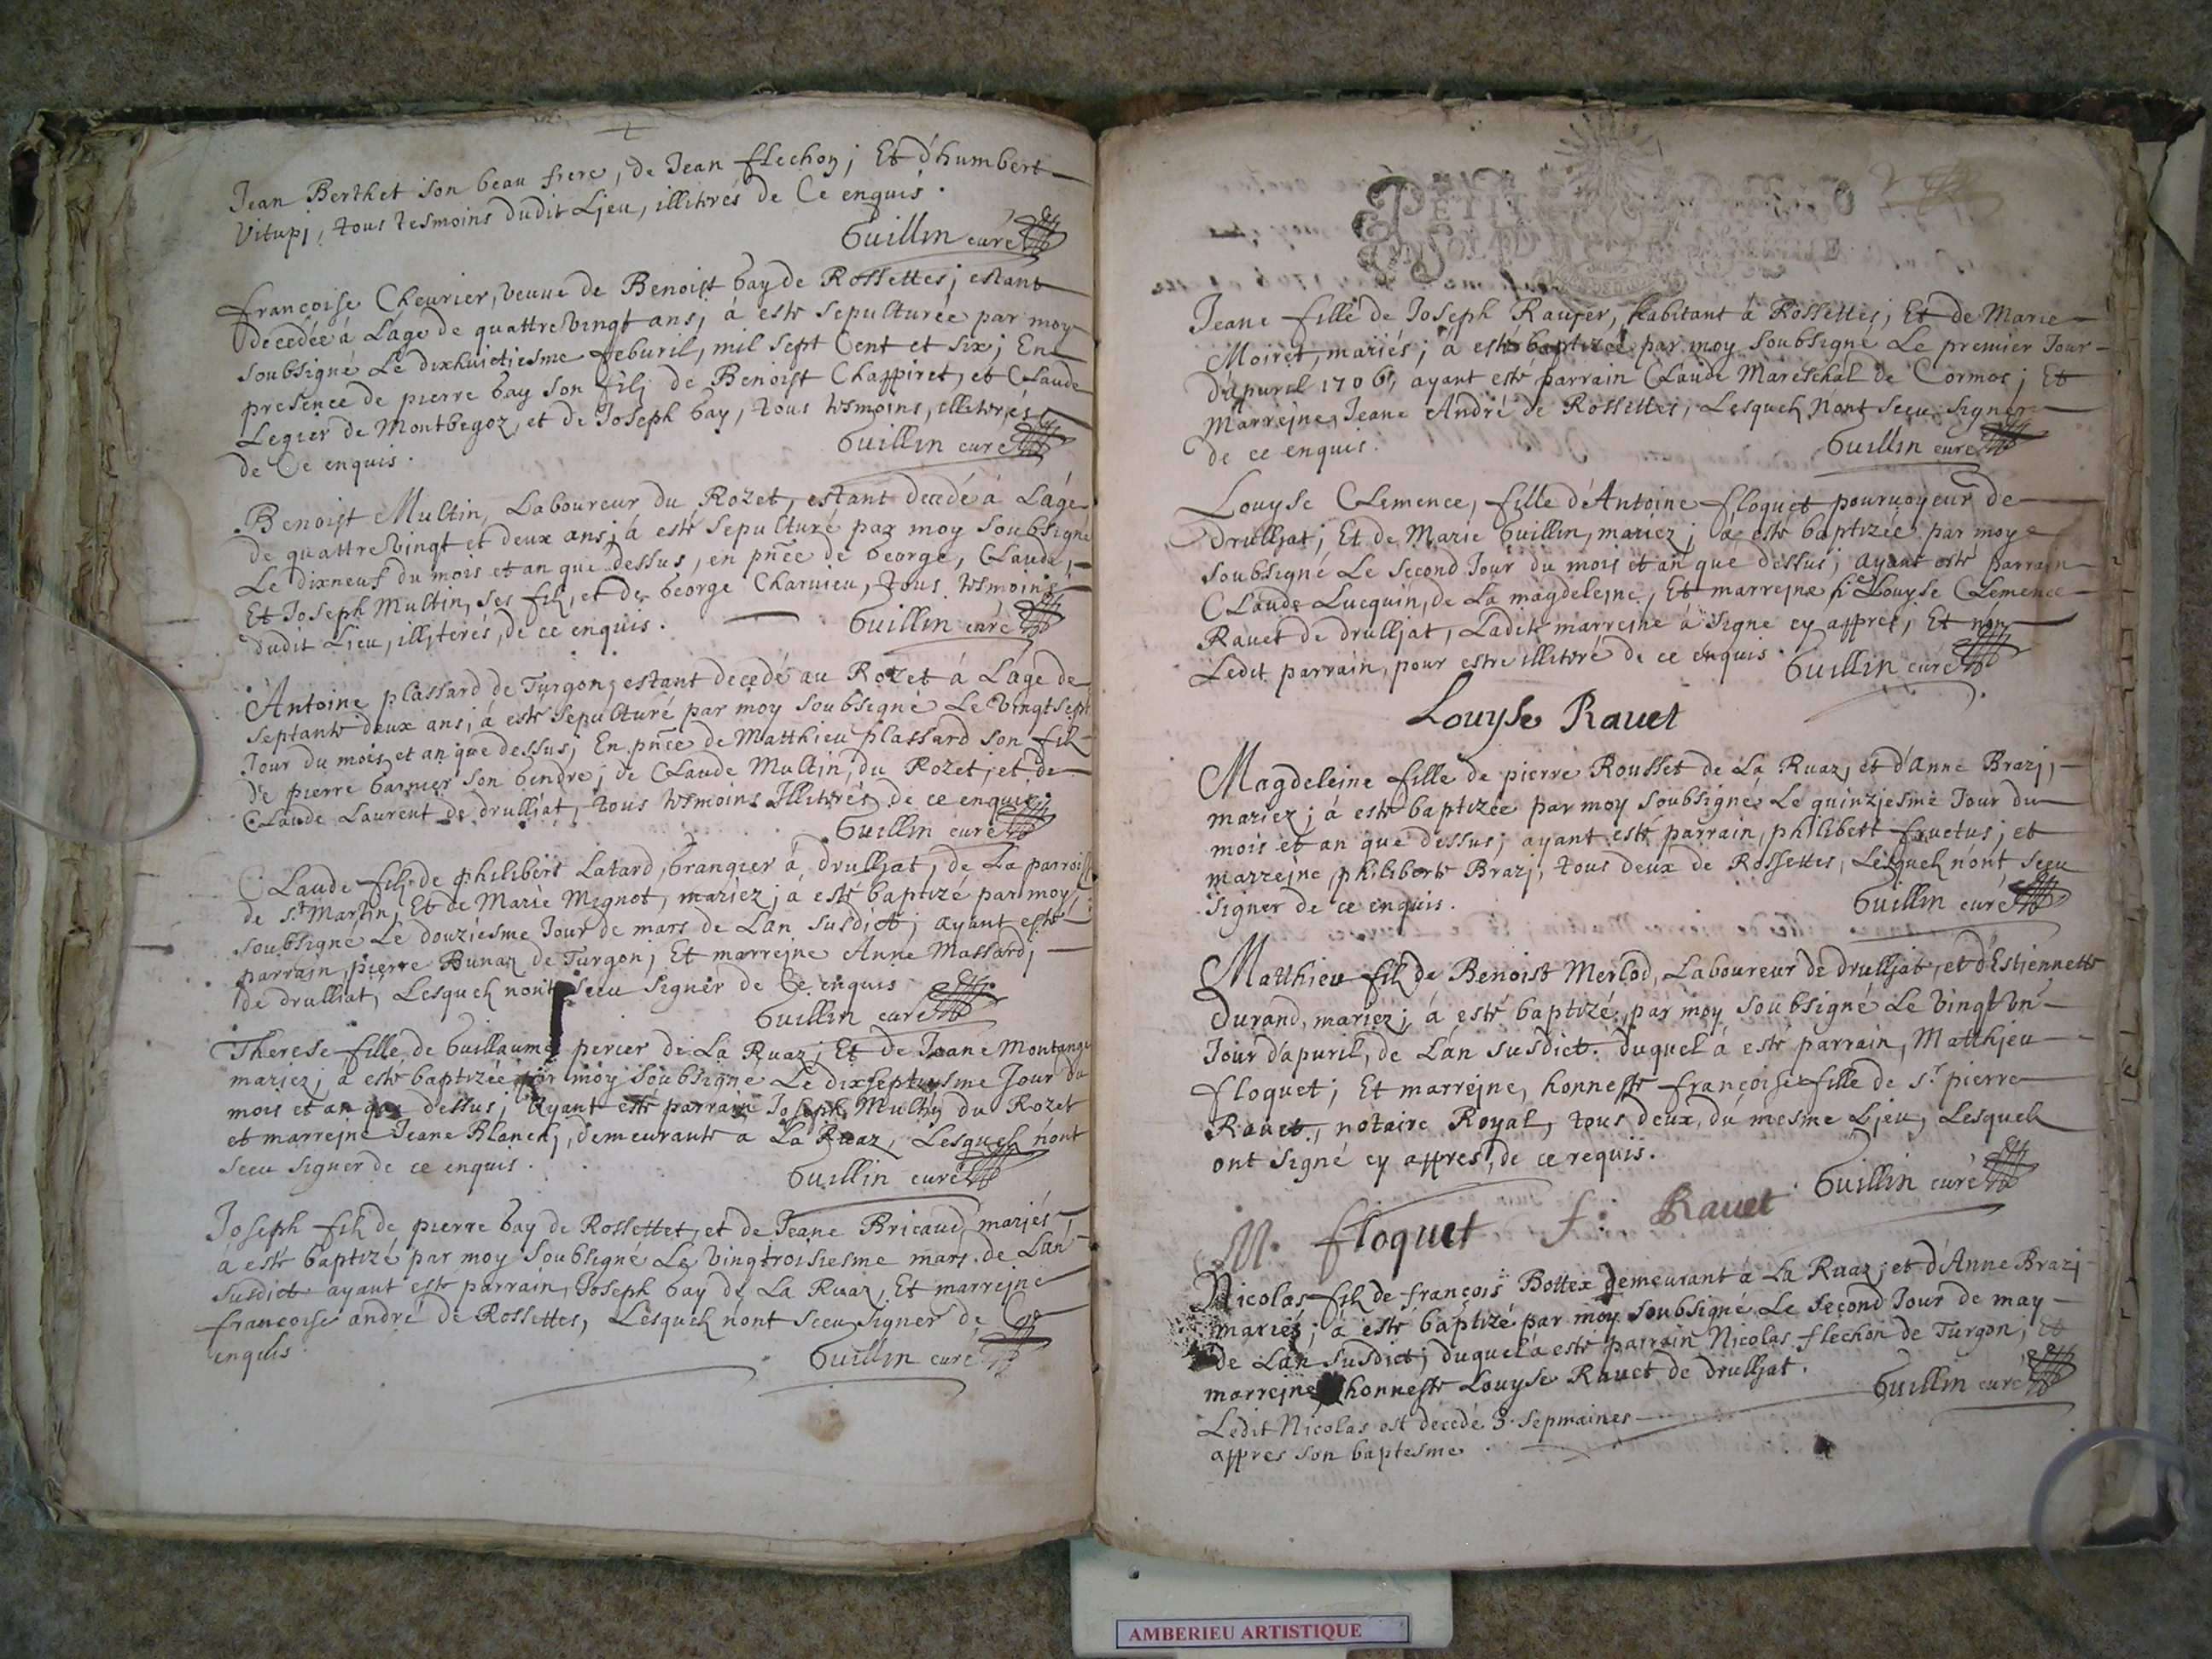 Jean Berthet son beau frere, de Jean flechon; Et d'humbert
Vitupj, tous tesmoins dudit Ljeu, illiterés de Ce enquis.
Guillin curé
françoise Cheurier, veuue de Benoist Gay de Rossettes; estant
decedée á L'áge de quattre Vingt ans, á esté sepulturée par moy
soubsigné Le dixhuictiesme feburil, mil sept Cent et six; En
presence de pierre Gay son filz de Benoist Chappiret, et Claude
Legier de Montbegoz, et de Joseph Gay, tous tesmoins, illiterés
de Ce enquis.
Guillin curé
Benoist Multin, Laboureur du Rozet, estant decedé á L'áge
de quattre Vingt et deux ans; á esté sepulturé par moy soubsigné
Le dixneuf du mois et an que dessus, en pñce de George, Claude,
Et Joseph Multin, ses filz, et de George Charuieu, tous tesmoins
dudit Ljeu, illiterés, de ce enquis.
Guillin curé
Antoine plassard de Turgon, estant decedé au Rozet á L'age de
septante deux ans; á esté sepulturé par moy soubsigné Le Vingt sept
Jour du mois et an que dessus; En pñce de Matthieu plassard son filz
de pierre Garnier son Gendre; de Claude Multin, du Rozet; et de
Claude Laurent de drulljat, tous tesmoins Illiterés de ce enquis
Guillin curé
Claude filz de philibert Latard, Grangier á drulljat, de La parroisse
de St Martin, Et de Marie Mignot, mariez; á esté baptizé par moy,
soubsigné Le douziesme Jour de mars de L'an susdict; ayant esté
parrain, pierre Bunaz de Turgon; Et marrejne Anne Massard,
de drulliat, Lesquelz nont sceu signer de Ce enquis
Guillin curé
Therese fille de Guillaume percer de La Ruaz; Et de Jeane Montangu
mariez; á esté baptizée par moy soubsigné Le dixseptiesme Jour du
mois et an que dessus; Ayant esté parrain Joseph Multin du Rozet
et marrejne Jeane Blanch, demeurants á La Ruaz, Lesquelz n'ont
sceu signer de ce enquis.
Guillin curé
Joseph filz de pierre Gay de Rossettet, et de Jeane Bricaud, mariés,
á esté baptizé par moy soubsigné Le Vingtroisiesme mars de L'an
susdict ayant esté parrain, Joseph Gay de La Ruaz, Et marrejne
françoise andré de Rossettes, Lesquelz n'ont sceu signer de Ce
enquis
Guillin curé
PETIT
Jeane fille de Joseph Rauyer, habitant á Rossettes; Et de Marie
Moiret, mariés; á esté baptizée par moy soubsigné Le premier Jour
d'apuril 1706, ayant esté parrain Claude Mareschal de Cormos; Et
Marrejne, Jeane André de Rossettes, Lesquelz nont sceu signer
de ce enquis.
Guillin curé
Louyse Clemence, fille d'Antoine floquet pouruoyeur de
drulljat; Et de Marie Guillin, mariez; á esté baptizée par moy
soubsigné Le second Jour du mois et an que dessus; ayant esté parrain
Claude Lucquin, de La magdelejne, Et marrejne Louyse Clemence
Rauet de drulljat, Ladite marrejne á signé cy appres; Et non
Ledit parrain, pour estre illiteré de ce enquis.
Guillin curé
Louyse Rauet
Magdeleine fille de pierre Rousset de La Ruaz, et d'Anne Brazj,
mariez; á esté baptizée par moy soubsigné Le quinzjesme Jour du
mois et an que dessus; ayant esté parrain, philibert fructus; et
marrejne, philiberte Brazj, tous deux de Rossettes, Lesquelz n'ont sceu
signer de ce enquis.
Guillin curé
Matthieu filz de Benoist Merlod, Laboureur de drulljat, et d'Estiennette
Durand, mariez; á esté baptizé par moy soubsigné Le Vingt Vn
Jour d'apuril, de L'an susdict. duquel á esté parrain, Matthjeu
floquet; Et marrejne, honneste françoise fille de sr pierre
Rauet, notaire Royal, tous deux du mesme Ljeu, Lesquelz
ont signé cy appres, de ce requis.
Guillin curé
M. floquet f: Rauet
Nicolas filz de françois Bottex demeurant á La Ruaz, et d'Anne Brazj
mariés; á esté baptizé par moy soubsigné Le second Jour de may
de L'an susdict; duquel á esté parrain Nicolas flechon de Turgon; et
marrejne honneste Louyse Rauet de drulljat.
Guillin curé
Ledit Nicolas est decedé 3. sepmaines
appres son baptesme.
AMBERIEU ARTISTIQUE